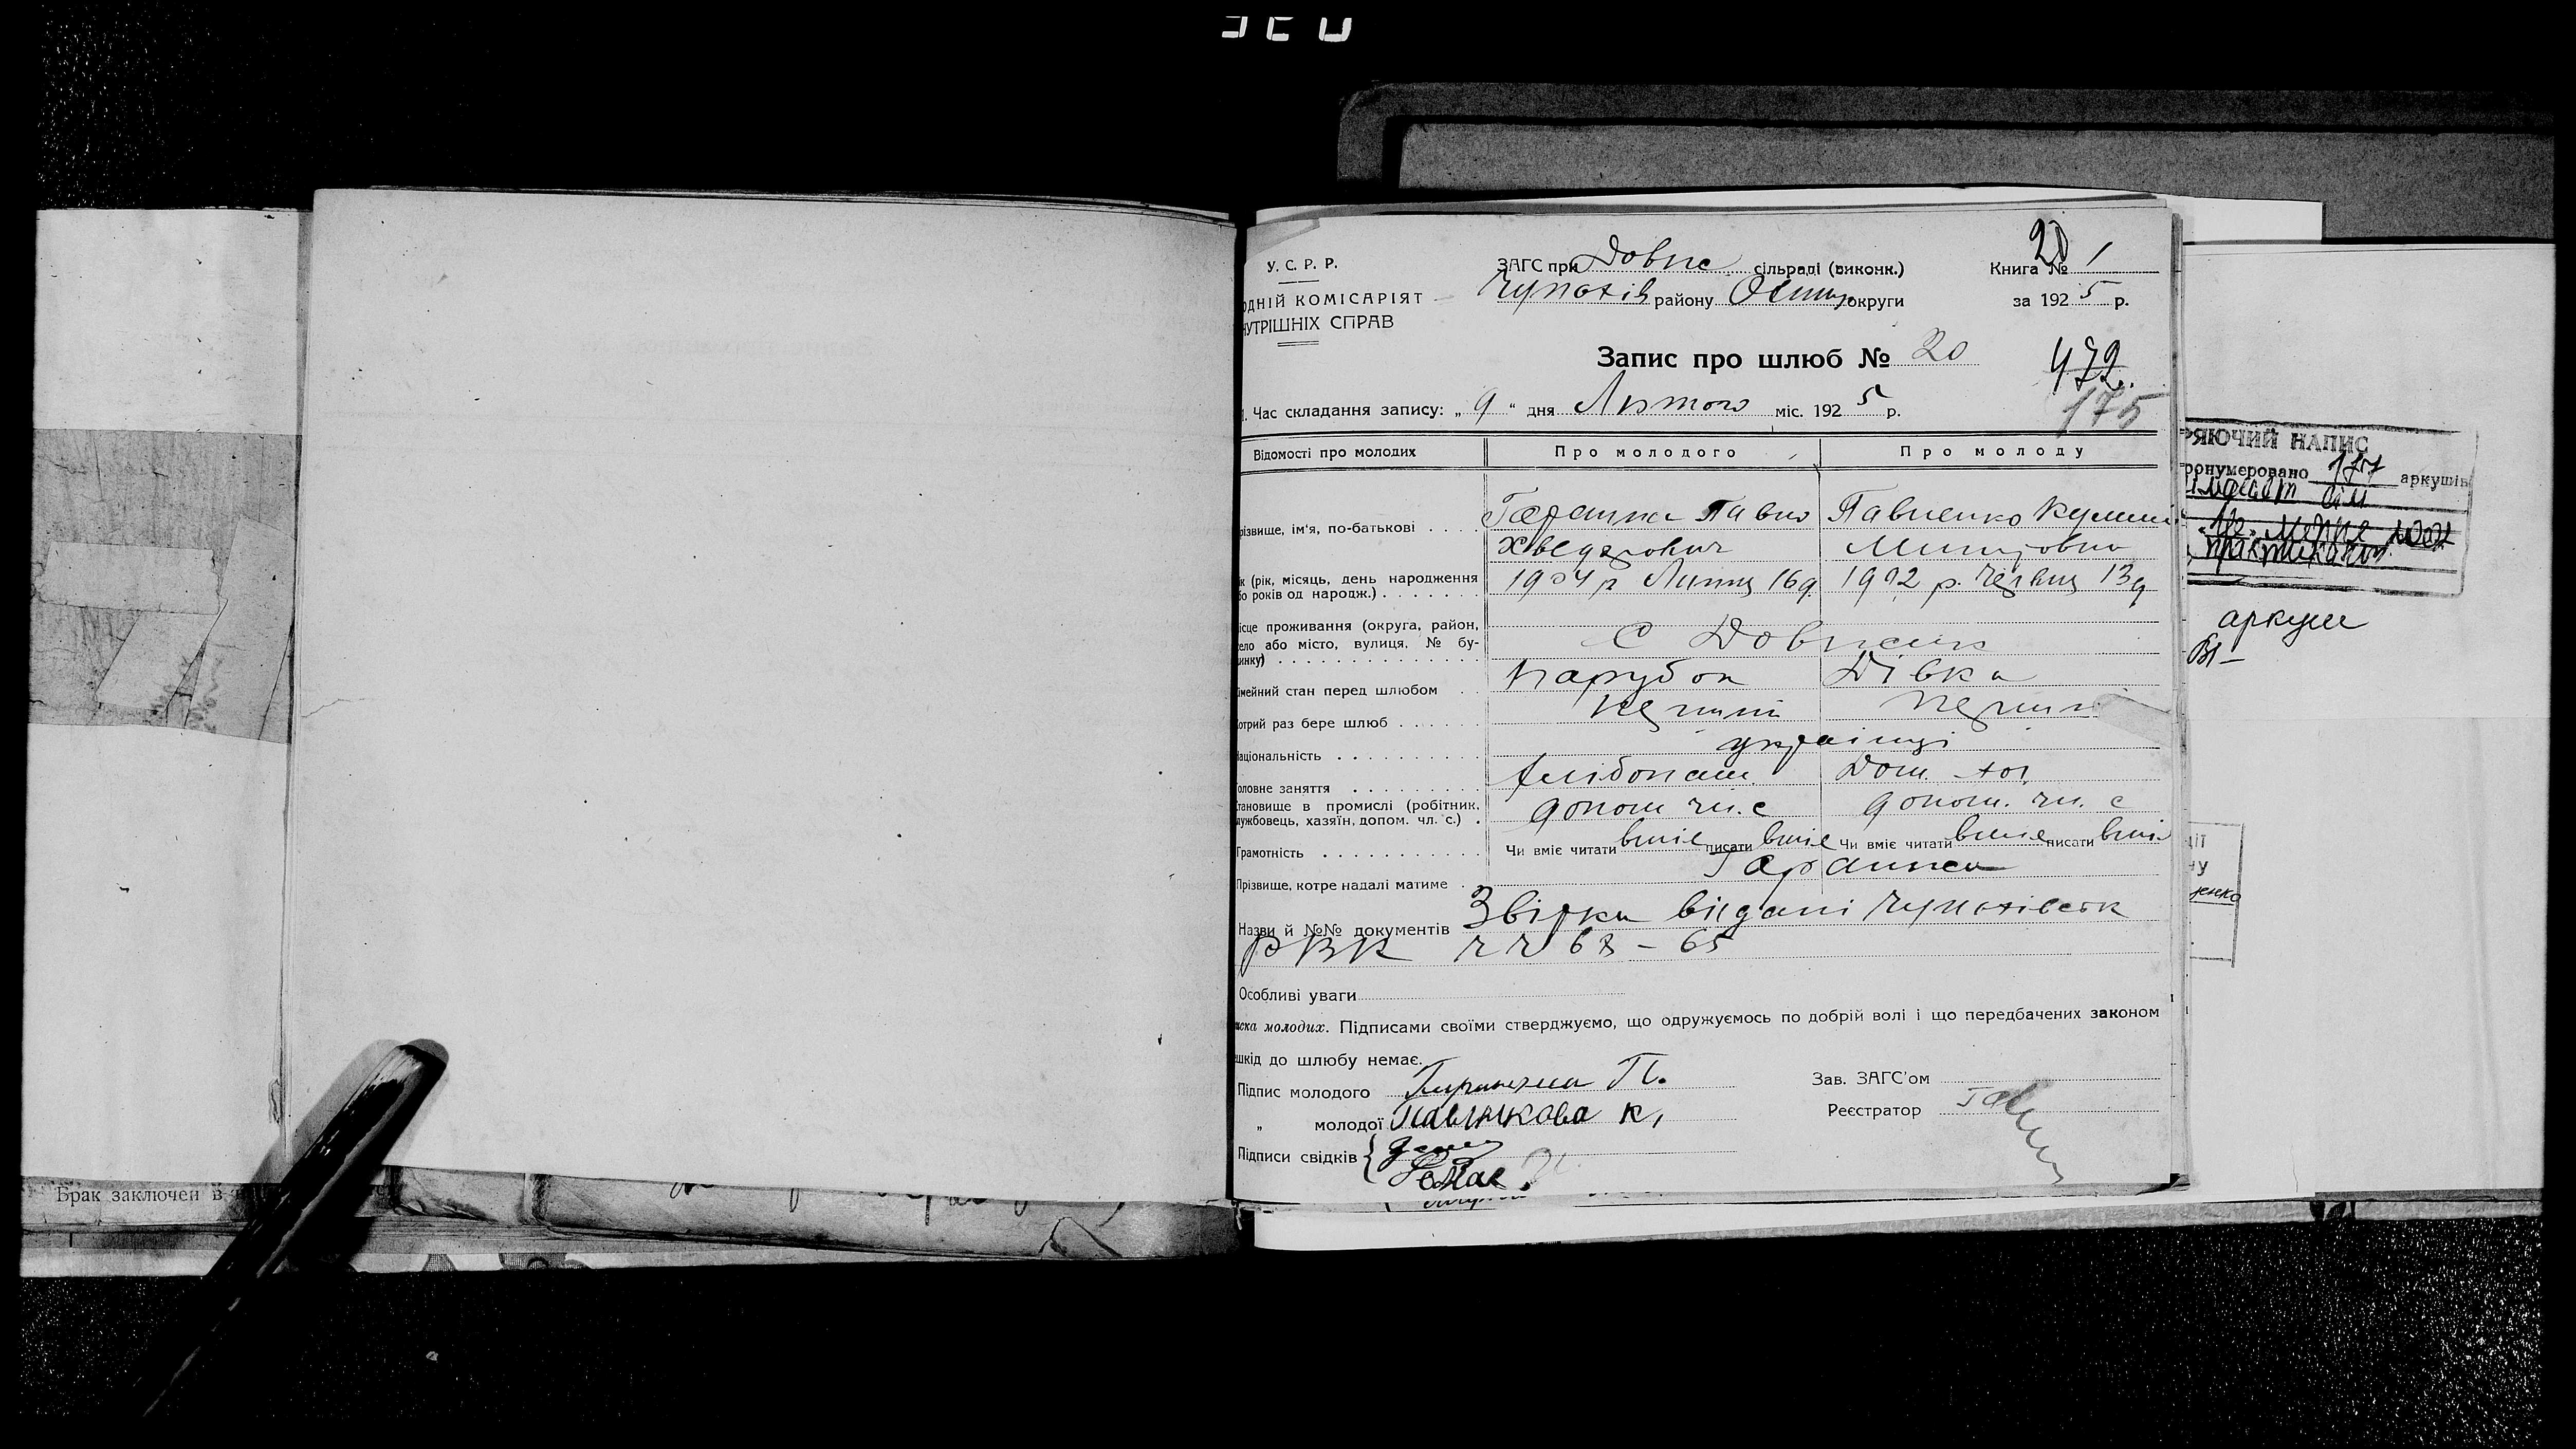 У. С. Р. Р.
ОДНІЙ КОМІСАРІЯТ
НУТРІШНІХ СПРАВ
ЗАГС при Довпс сільраді (виконк.)
Чупахів району округи
20
Книга № 1
за 1925 р.
Запис про шлюб № 20
472.
175
1. Час складання запису: „9“ дня Лютого міс. 1925 р.
Відомості про молодих Про молодого Про молоду
різвище, ім'я, по-батькові Гаранжа Павло Павленко
Хведорович
к (рік, місяць, день народження 1904 р Липця 16 д. 1902 р. Червця 13 д
бо років од народж.)
ісце проживання (округа, район,
ело або місто, вулиця, № бу- С
инку)
імейний стан перед шлюбом Парубок Дівка
отрий раз бере шлюб перший перший
аціональність українці
оловне заняття хлібопаш. Дом. хоз.
тановище в промислі (робітник, допом чл. с допом. чл. с
ужбовець, хазяїн, допом. чл. с.)
Грамотність Чи вміє читати вміє писати вміє Чи вміє читати вміє писати вміє
Прізвище, котре надалі матиме Гаранжа
Назви й №№ документів Звірки видані Чупахівськ
РВК 68 – 65
Особливі уваги
иска молодих. Підписами своїми стверджуємо, що одружуємось по добрій волі і що передбачених законом
ешкід до шлюбу немає.
Підпис молодого Гаранжа П.
„ молодої Павлюкова К,
Підписи свідків
Зав. ЗАГС'ом
Реєстратор
РЯЮЧИЙ НАПИС
ронумеровано 177 аркушів
аркуш
ІІ
У
енко
Брак заключен в